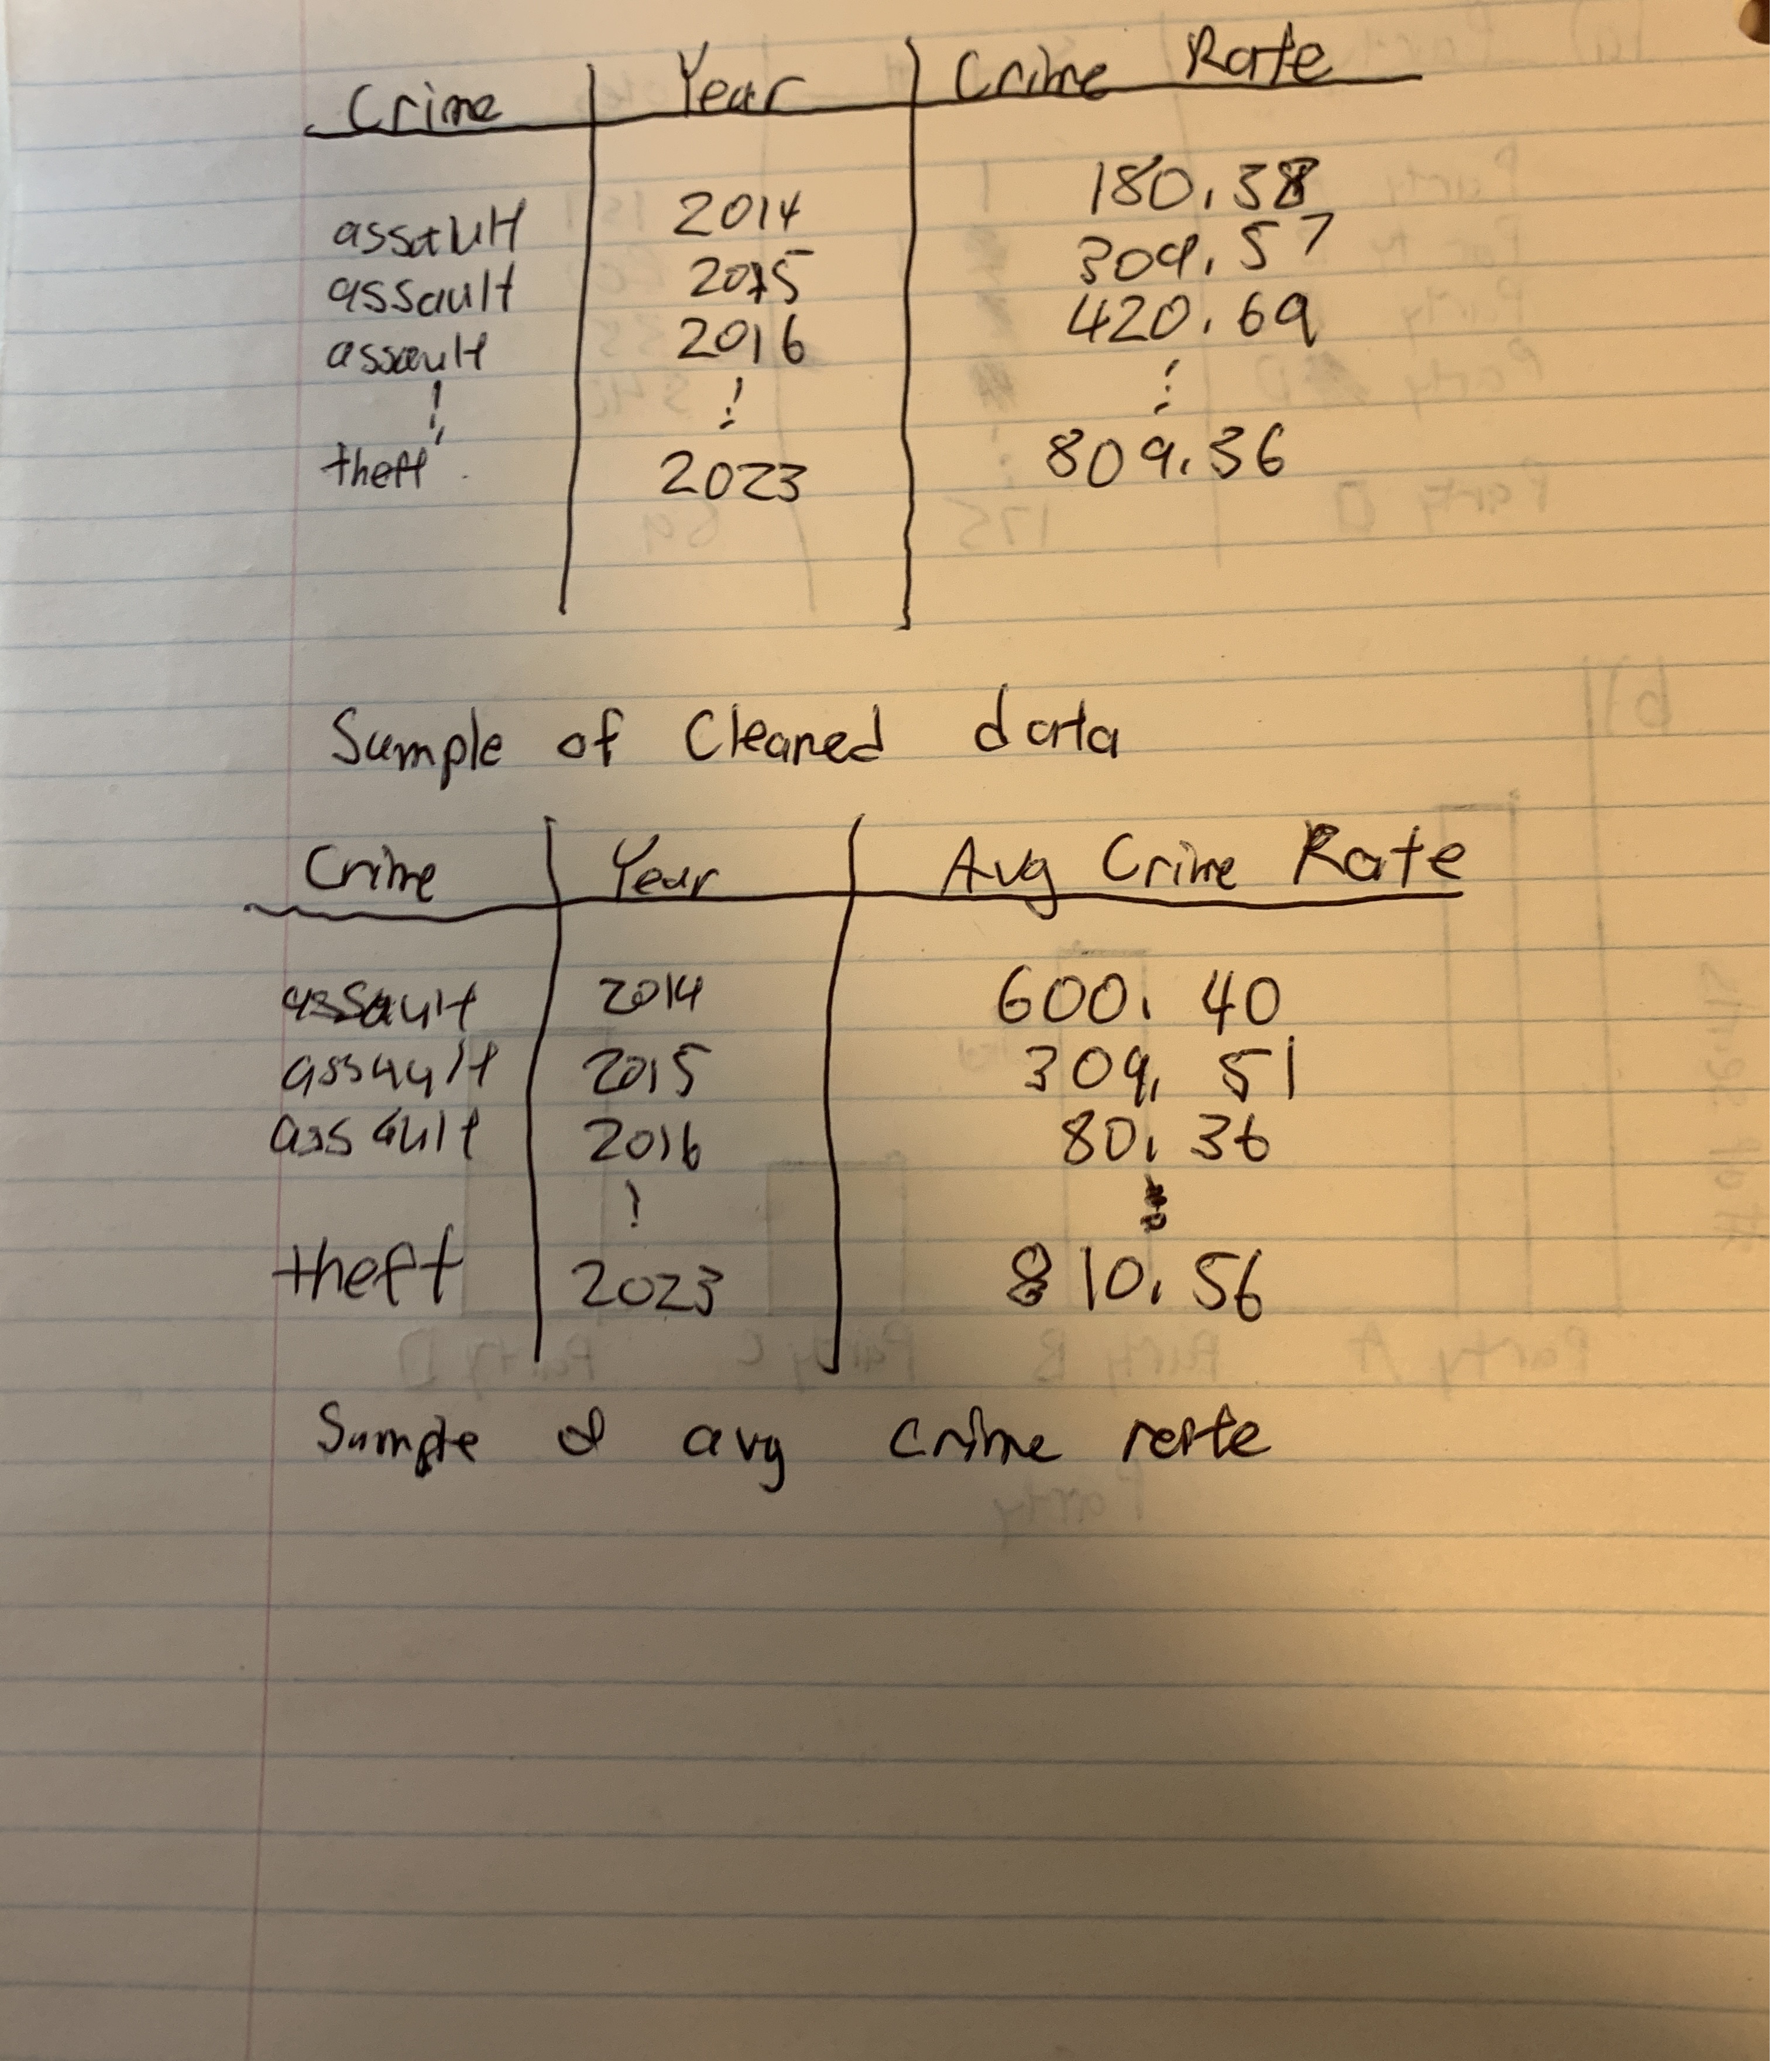 Crime Year Crime Rate
assault 2014 180.38
assault 2015 309.57
assault 2016 420.69
⋮ ⋮ ⋮
theft 2023 809.36
Sample of Cleaned data
Crime Year Avg Crime Rate
assault 2014 600.40
assault 2015 309.51
assault 2016 80.36
⋮
theft 2023 810.56
Sample of avg crime rate